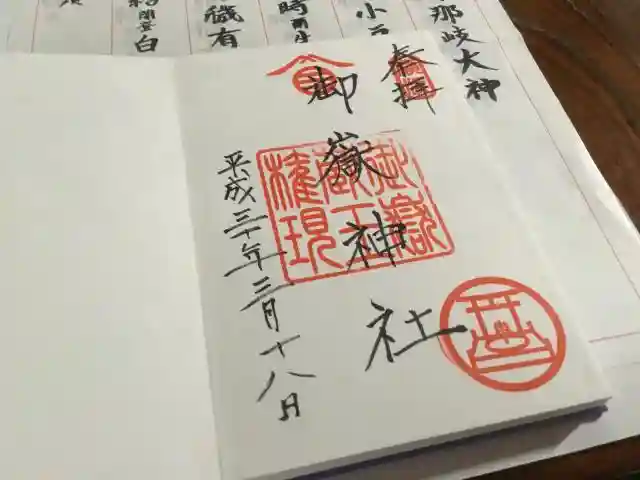 那岐大神
小
時雨
織有
白
奉拝
御嶽神社
平成三十年三月十八日
御嶽
蔵王
権現